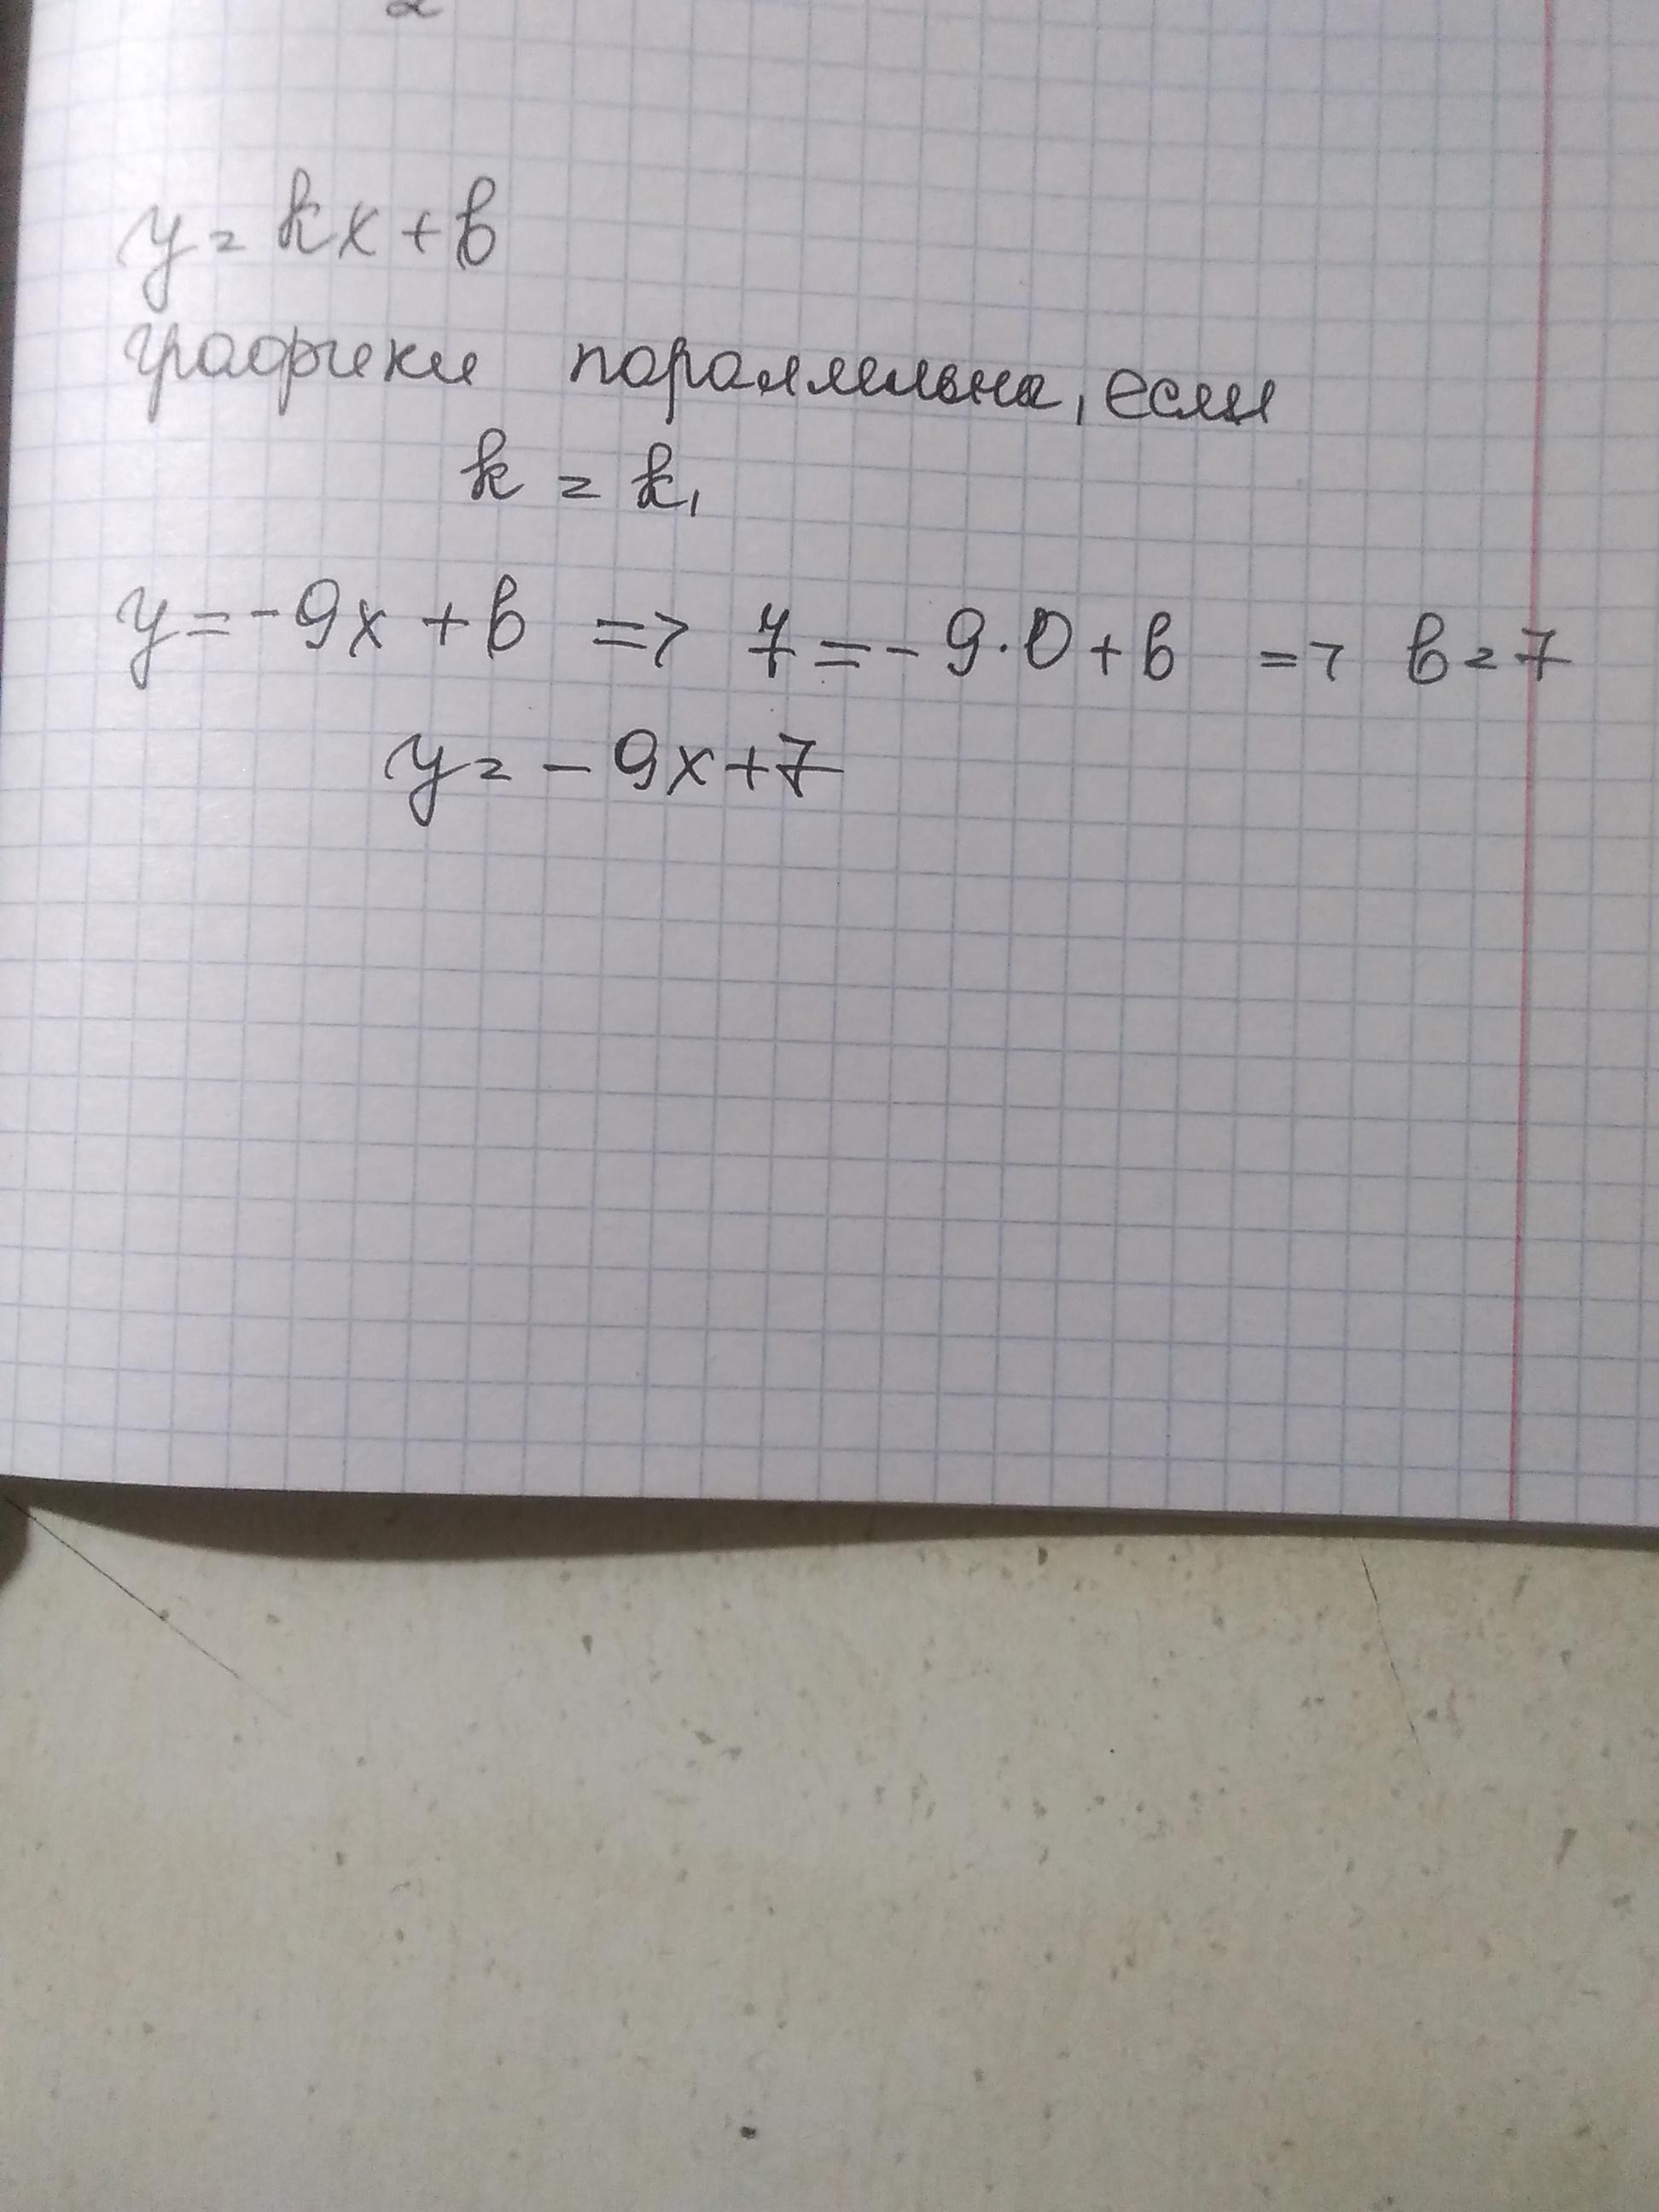 2
y = kx + b
графики пораллельна, если
k = k₁
y = -9x + b => 7 = -9·0 + b => b = 7
y = -9x + 7